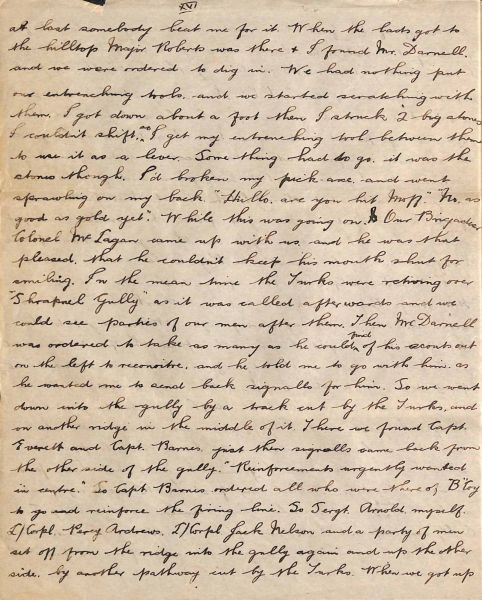 XVI
at last somebody beat me for it. When the lads got to
the hilltop Major Roberts was there & I found Mr. Darnell.
and we were ordered to dig in. We had nothing but
our entrenching tools. and we started scratching with
them. I got down about a foot then I struck 2 big stones
I couldn't shift. so I get my entrenching tool between them
to use it as a lever. Something had to go. it was the
stones though. I'd broken my pick axe. and went
sprawling on my back. "Hullo. are you hit Moff" "No. as
good as gold yet". While this was going on. Our Brigadier
Colonel McLagan came up with us. and he was that
pleased. that he couldn't keep his mouth shut for
smiling. In the mean time the Turks were retiring over
"Shrapnel Gully" as it was called afterwards and we
could see parties of our men after them. Then Mr Darnell
was ordered to take so many as he could find of his scouts out
on the left to reconoitre. and he told me to go with him. as
he wanted me to send back signalls for him. So we went
down into the gully by a track cut by the Turks, and
on another ridge in the middle of it. There we found Capt.
Everett and Capt. Barnes. just then signalls came back from
the other side of the gully. "Reinforcements urgently wanted
in centre." So Capt Barnes ordered all who were there of B Coy
to go and reinforce the firing line. So Sergt. Arnold, myself.
L/Corpl. Percy Andrews. L/Corpl Jack Nelson and a party of men
set off from the ridge into the gully again and up the other
side. by another pathway cut by the Turks. When we got up